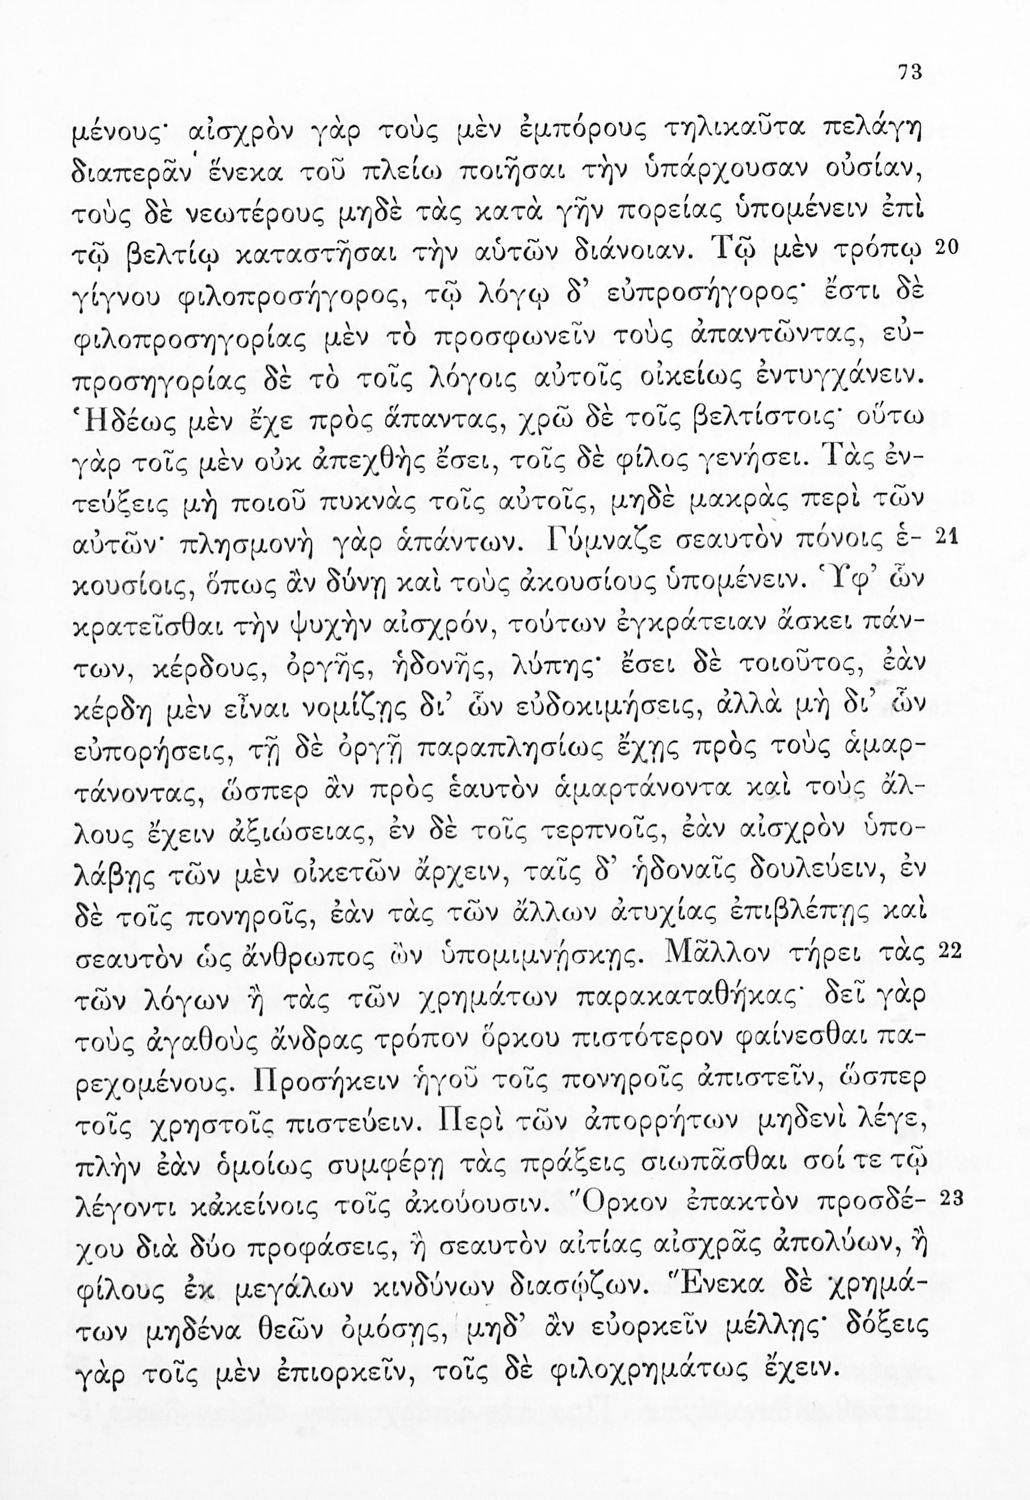 73
μένους· αἰσχρὸν γὰρ τοὺς μὲν ἐμπόρους τηλικαῦτα πελάγη
διαπερᾶν ἕνεκα τοῦ πλείω ποιῆσαι τὴν ὑπάρχουσαν οὐσίαν,
τοὺς δὲ νεωτέρους μηδὲ τὰς κατὰ γῆν πορείας ὑπομένειν ἐπὶ
τῷ βελτίω καταστῆσαι τὴν αὑτῶν διάνοιαν. Τῷ μὲν τρόπῳ 20
γίγνου φιλοπροσήγορος, τῷ λόγῳ δ’ εὐπροσήγορος· ἔστι δὲ
φιλοπροσηγορίας μὲν τὸ προσφωνεῖν τοὺς ἀπαντῶντας, εὐ-
προσηγορίας δὲ τὸ τοῖς λόγοις αὐτοῖς οἰκείως ἐντυγχάνειν.
Ἡδέως μὲν ἔχε πρὸς ἅπαντας, χρῶ δὲ τοῖς βελτίστοις· οὕτω
γὰρ τοῖς μὲν οὐκ ἀπεχθὴς ἔσει, τοῖς δὲ φίλος γενήσει. Τὰς ἐν-
τεύξεις μὴ ποιοῦ πυκνὰς τοῖς αὐτοῖς, μηδὲ μακρὰς περὶ τῶν
αὐτῶν· πλησμονὴ γὰρ ἁπάντων. Γύμναζε σεαυτὸν πόνοις ἑ- 21
κουσίοις, ὅπως ἂν δύνῃ καὶ τοὺς ἀκουσίους ὑπομένειν. Ὑφ’ ὧν
κρατεῖσθαι τὴν ψυχὴν αἰσχρόν, τούτων ἐγκράτειαν ἄσκει πάν-
των, κέρδους, ὀργῆς, ἡδονῆς, λύπης· ἔσει δὲ τοιοῦτος, ἐὰν
κέρδη μὲν εἶναι νομίζῃς δι’ ὧν εὐδοκιμήσεις, ἀλλὰ μὴ δι’ ὧν
εὐπορήσεις, τῇ δὲ ὀργῇ παραπλησίως ἔχῃς πρὸς τοὺς ἁμαρ-
τάνοντας, ὥσπερ ἂν πρὸς ἑαυτὸν ἁμαρτάνοντα καὶ τοὺς ἄλ-
λους ἔχειν ἀξιώσειας, ἐν δὲ τοῖς τερπνοῖς, ἐὰν αἰσχρὸν ὑπο-
λάβῃς τῶν μὲν οἰκετῶν ἄρχειν, ταῖς δ’ ἡδοναῖς δουλεύειν, ἐν
δὲ τοῖς πονηροῖς, ἐὰν τὰς τῶν ἄλλων ἀτυχίας ἐπιβλέπῃς καὶ
σεαυτὸν ὡς ἄνθρωπος ὢν ὑπομιμνήσκῃς. Μᾶλλον τήρει τὰς 22
τῶν λόγων ἢ τὰς τῶν χρημάτων παρακαταθήκας· δεῖ γὰρ
τοὺς ἀγαθοὺς ἄνδρας τρόπον ὅρκου πιστότερον φαίνεσθαι πα-
ρεχομένους. Προσήκειν ἡγοῦ τοῖς πονηροῖς ἀπιστεῖν, ὥσπερ
τοῖς χρηστοῖς πιστεύειν. Περὶ τῶν ἀπορρήτων μηδενὶ λέγε,
πλὴν ἐὰν ὁμοίως συμφέρῃ τὰς πράξεις σιωπᾶσθαι σοί τε τῷ
λέγοντι κἀκείνοις τοῖς ἀκούουσιν. Ὅρκον ἐπακτὸν προσδέ- 23
χου διὰ δύο προφάσεις, ἢ σεαυτὸν αἰτίας αἰσχρᾶς ἀπολύων, ἢ
φίλους ἐκ μεγάλων κινδύνων διασῴζων. Ἕνεκα δὲ χρημά-
των μηδένα θεῶν ὀμόσῃς, μηδ’ ἂν εὐορκεῖν μέλλῃς· δόξεις
γὰρ τοῖς μὲν ἐπιορκεῖν, τοῖς δὲ φιλοχρημάτως ἔχειν.